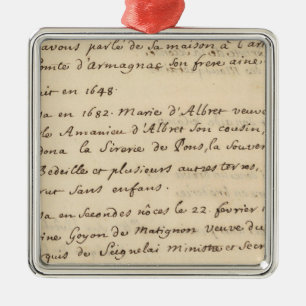 avons parlé de sa maison à l'ar
omte d'Armagnac son frere aîné
ait en 1648.
sa en 1682. Marie d'Albret veuve
le Amanieu d'Albret son cousin,
dona la Sirerie de Pons, la Souver
Bedeille et plusieurs autres terres,
rut sans enfans.
sa en secondes nôces le 22. fevrier
ine Goyon de Matignon veuve du
quis de Seignelai Ministre et Secr